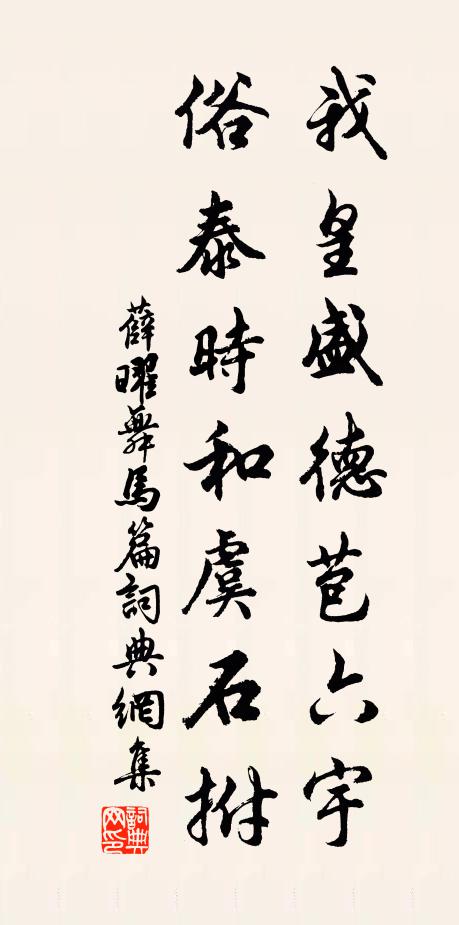 我皇盛德苞六宇
俗泰時和虞石拊
薛曜舞馬篇詞典網集
詞典網印